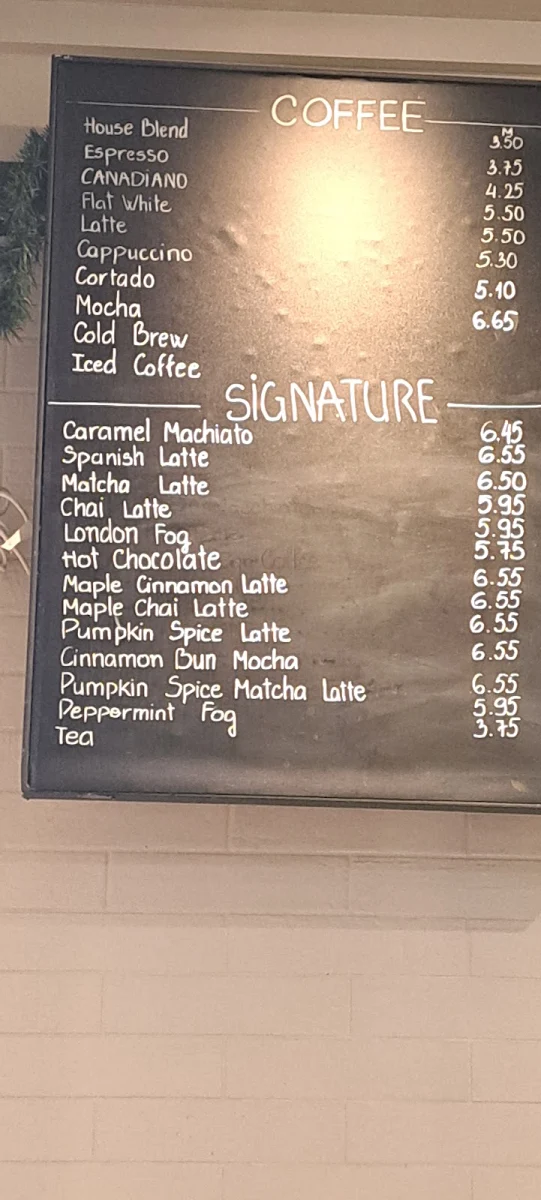 COFFEE
M
House Blend 3.50
Espresso 3.75
CANADiANO 4.25
Flat White 5.50
Latte 5.50
Cappuccino 5.30
Cortado 5.10
Mocha 6.65
Cold Brew
Iced Coffee
SiGNATURE
Caramel Machiato 6.45
Spanish Latte 6.55
Matcha Latte 6.50
Chai Latte 5.95
London Fog 5.95
Hot Chocolate 5.75
Maple Cinnamon Latte 6.55
Maple Chai Latte 6.55
Pumpkin Spice Latte 6.55
Cinnamon Bun Mocha 6.55
Pumpkin Spice Matcha Latte 6.55
Peppermint Fog 5.95
Tea 3.75